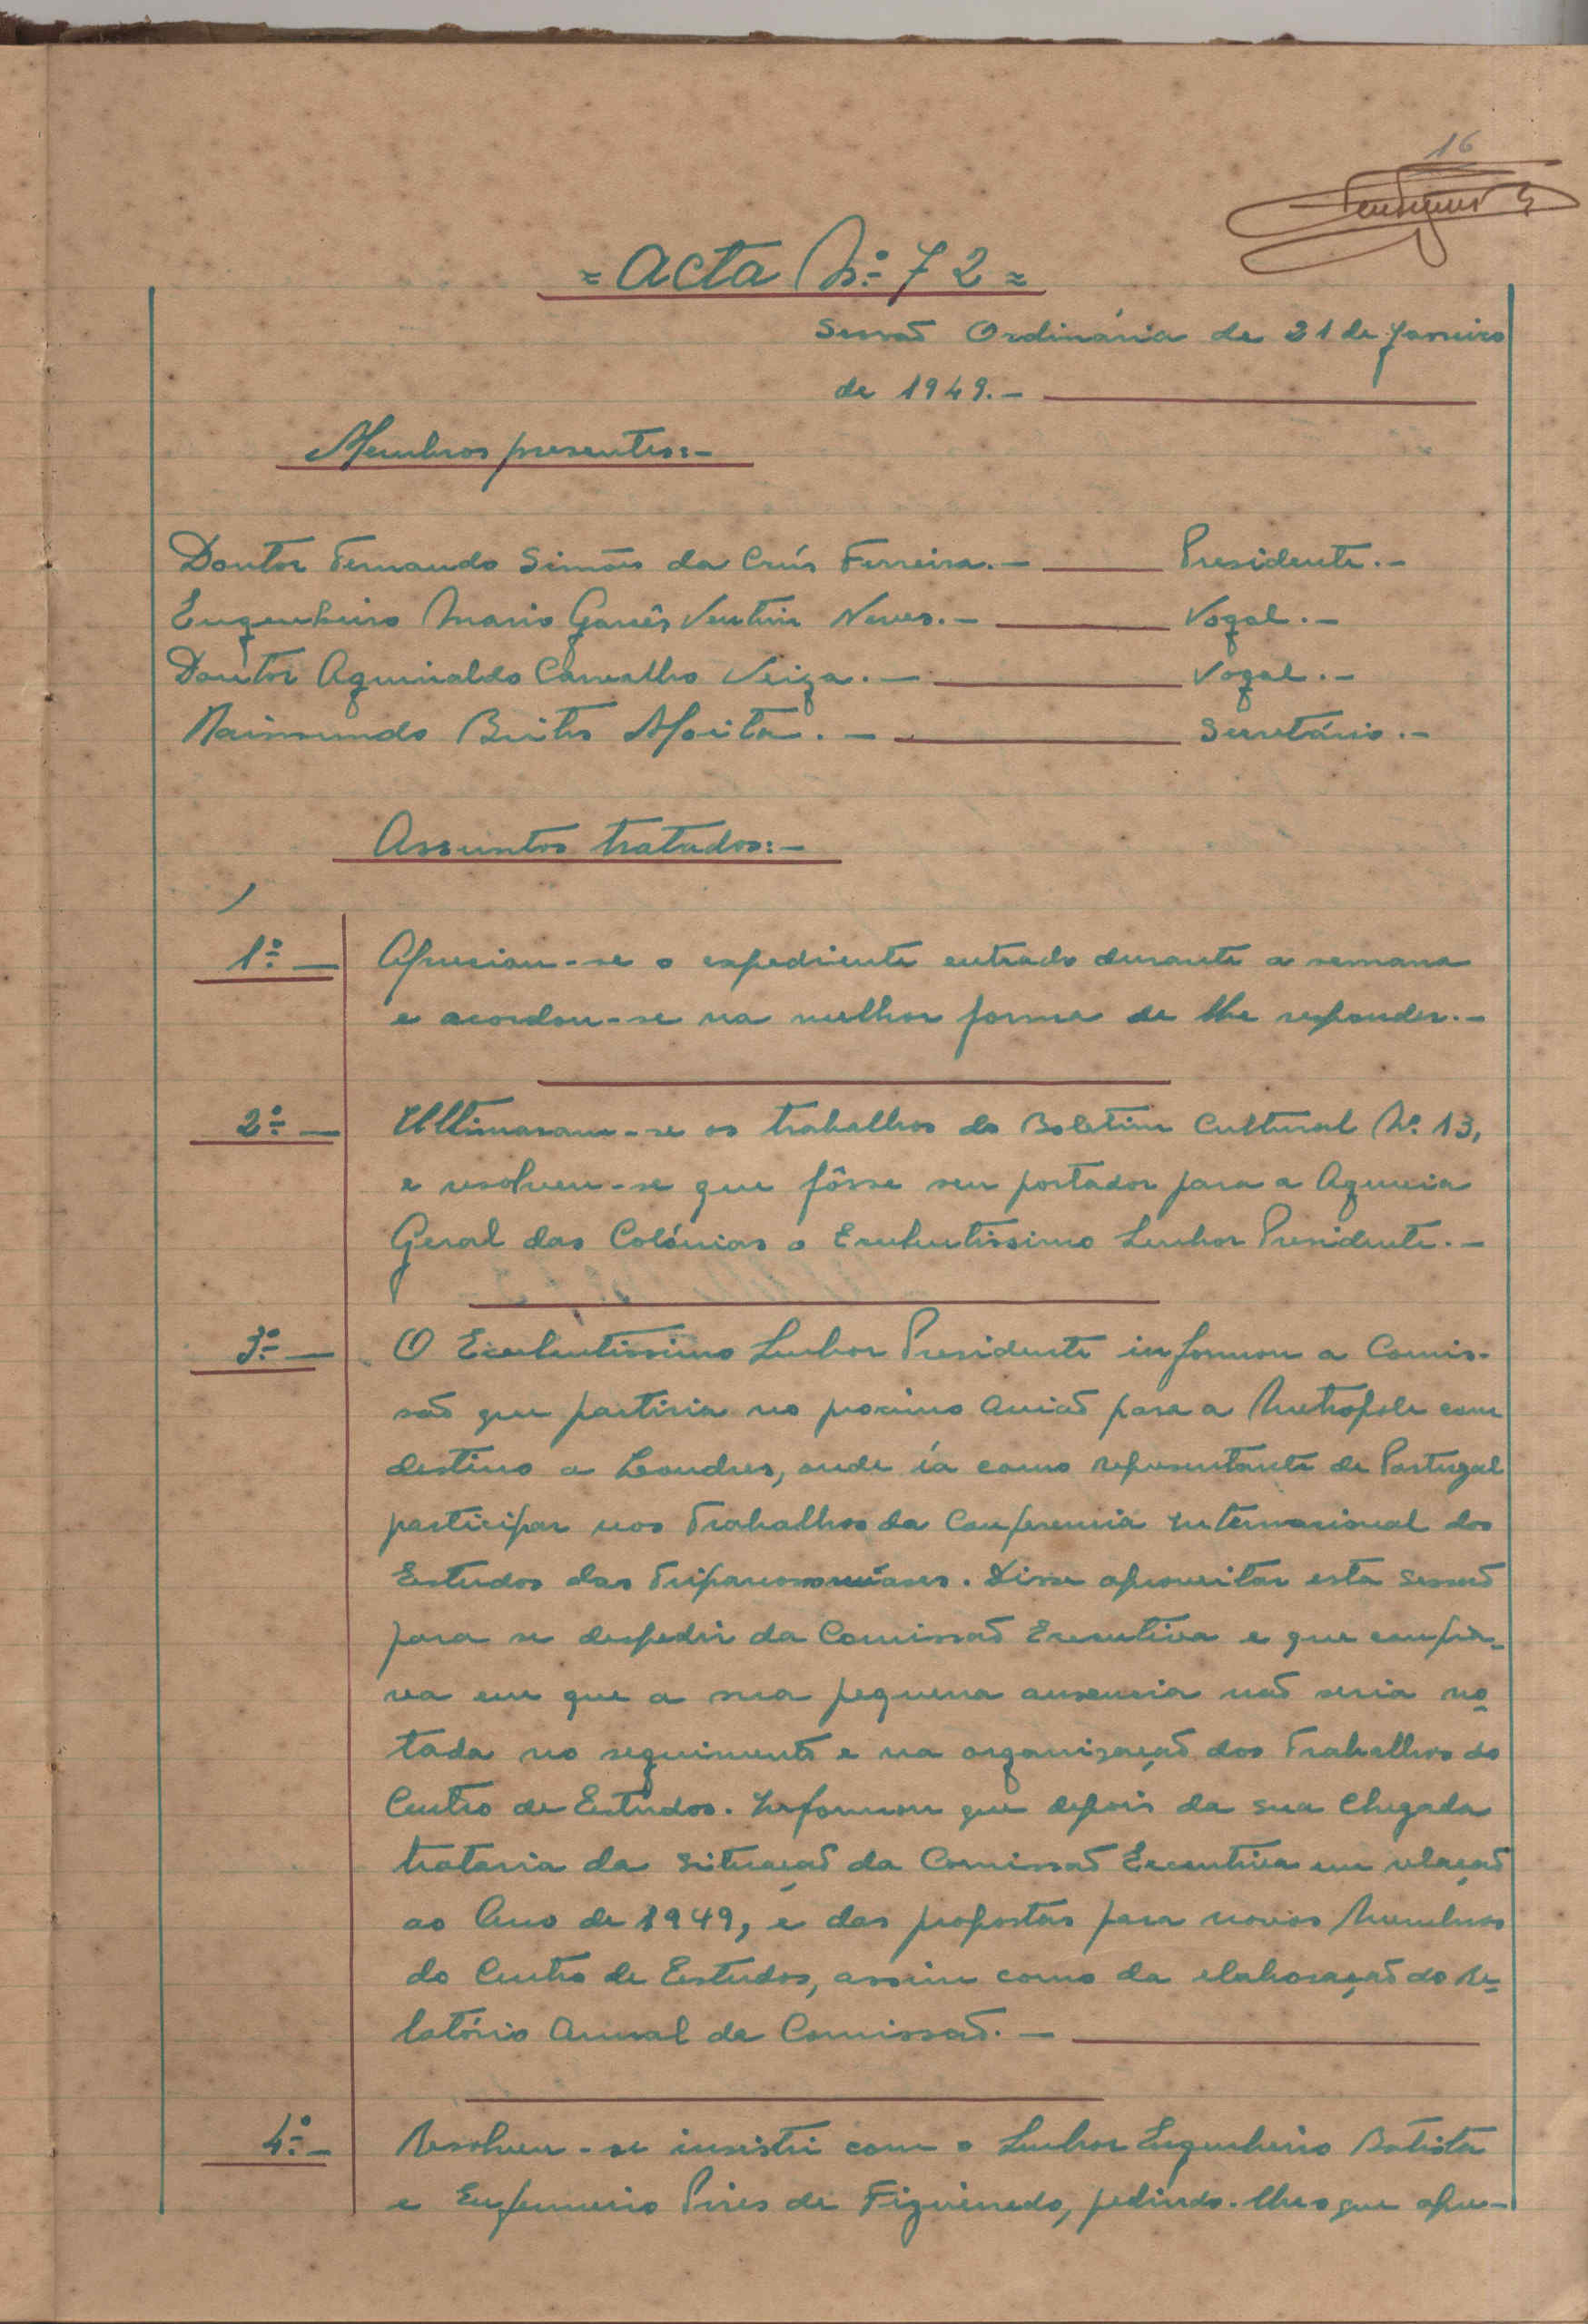 16
= Acta Nº 72 =
Sessão Ordinária de 21 de Janeiro
de 1949.-
Membros presentes:-
Doutor Fernando Simões da Crús Ferreira.- Presidente.-
Engenheiro Mario Garcês Ventim Neves.- Vogal.-
Doutor Aguinaldo Carvalho Veiga.- Vogal.-
Raimundo Brites Moita.- Secretário.-
Assuntos tratados:-
1º- Apreciou-se o expediente entrado durante a semana
e acordou-se na melhor forma de lhe responder.-
2º- Ultimaram-se os trabalhos do Boletim Cultural Nº 13,
e resolveu-se que fôsse seu portador para a Agencia
Geral das Colónias o Excelentissimo Senhor Presidente.-
3º- O Excelentissimo Senhor Presidente informou a Comis-
são que partiria no proximo avião para a Metropole com
destino a Londres, onde ía como representante de Portugal
participar nos Trabalhos da Conferencia Internacional dos
Estudos das Tripanosomíases. Disse aproveitar esta sessão
para se despedir da Comissão Executiva e que confia-
va em que a sua pequena ausencia não seria no-
tada no seguimento e na organização dos Trabalhos do
Centro de Estudos. Informou que depois da sua chegada
trataria da situação da Comissão Executiva em relação
ao Ano de 1949, e das propostas para novos Membros
do Centro de Estudos, assim como da elaboração do Re-
latório Anual da Comissão.-
4º- Resolveu-se insistir com o Senhor Engenheiro Batista
e Enfermeiro Pires de Figueiredo, pedindo-lhes que apre-